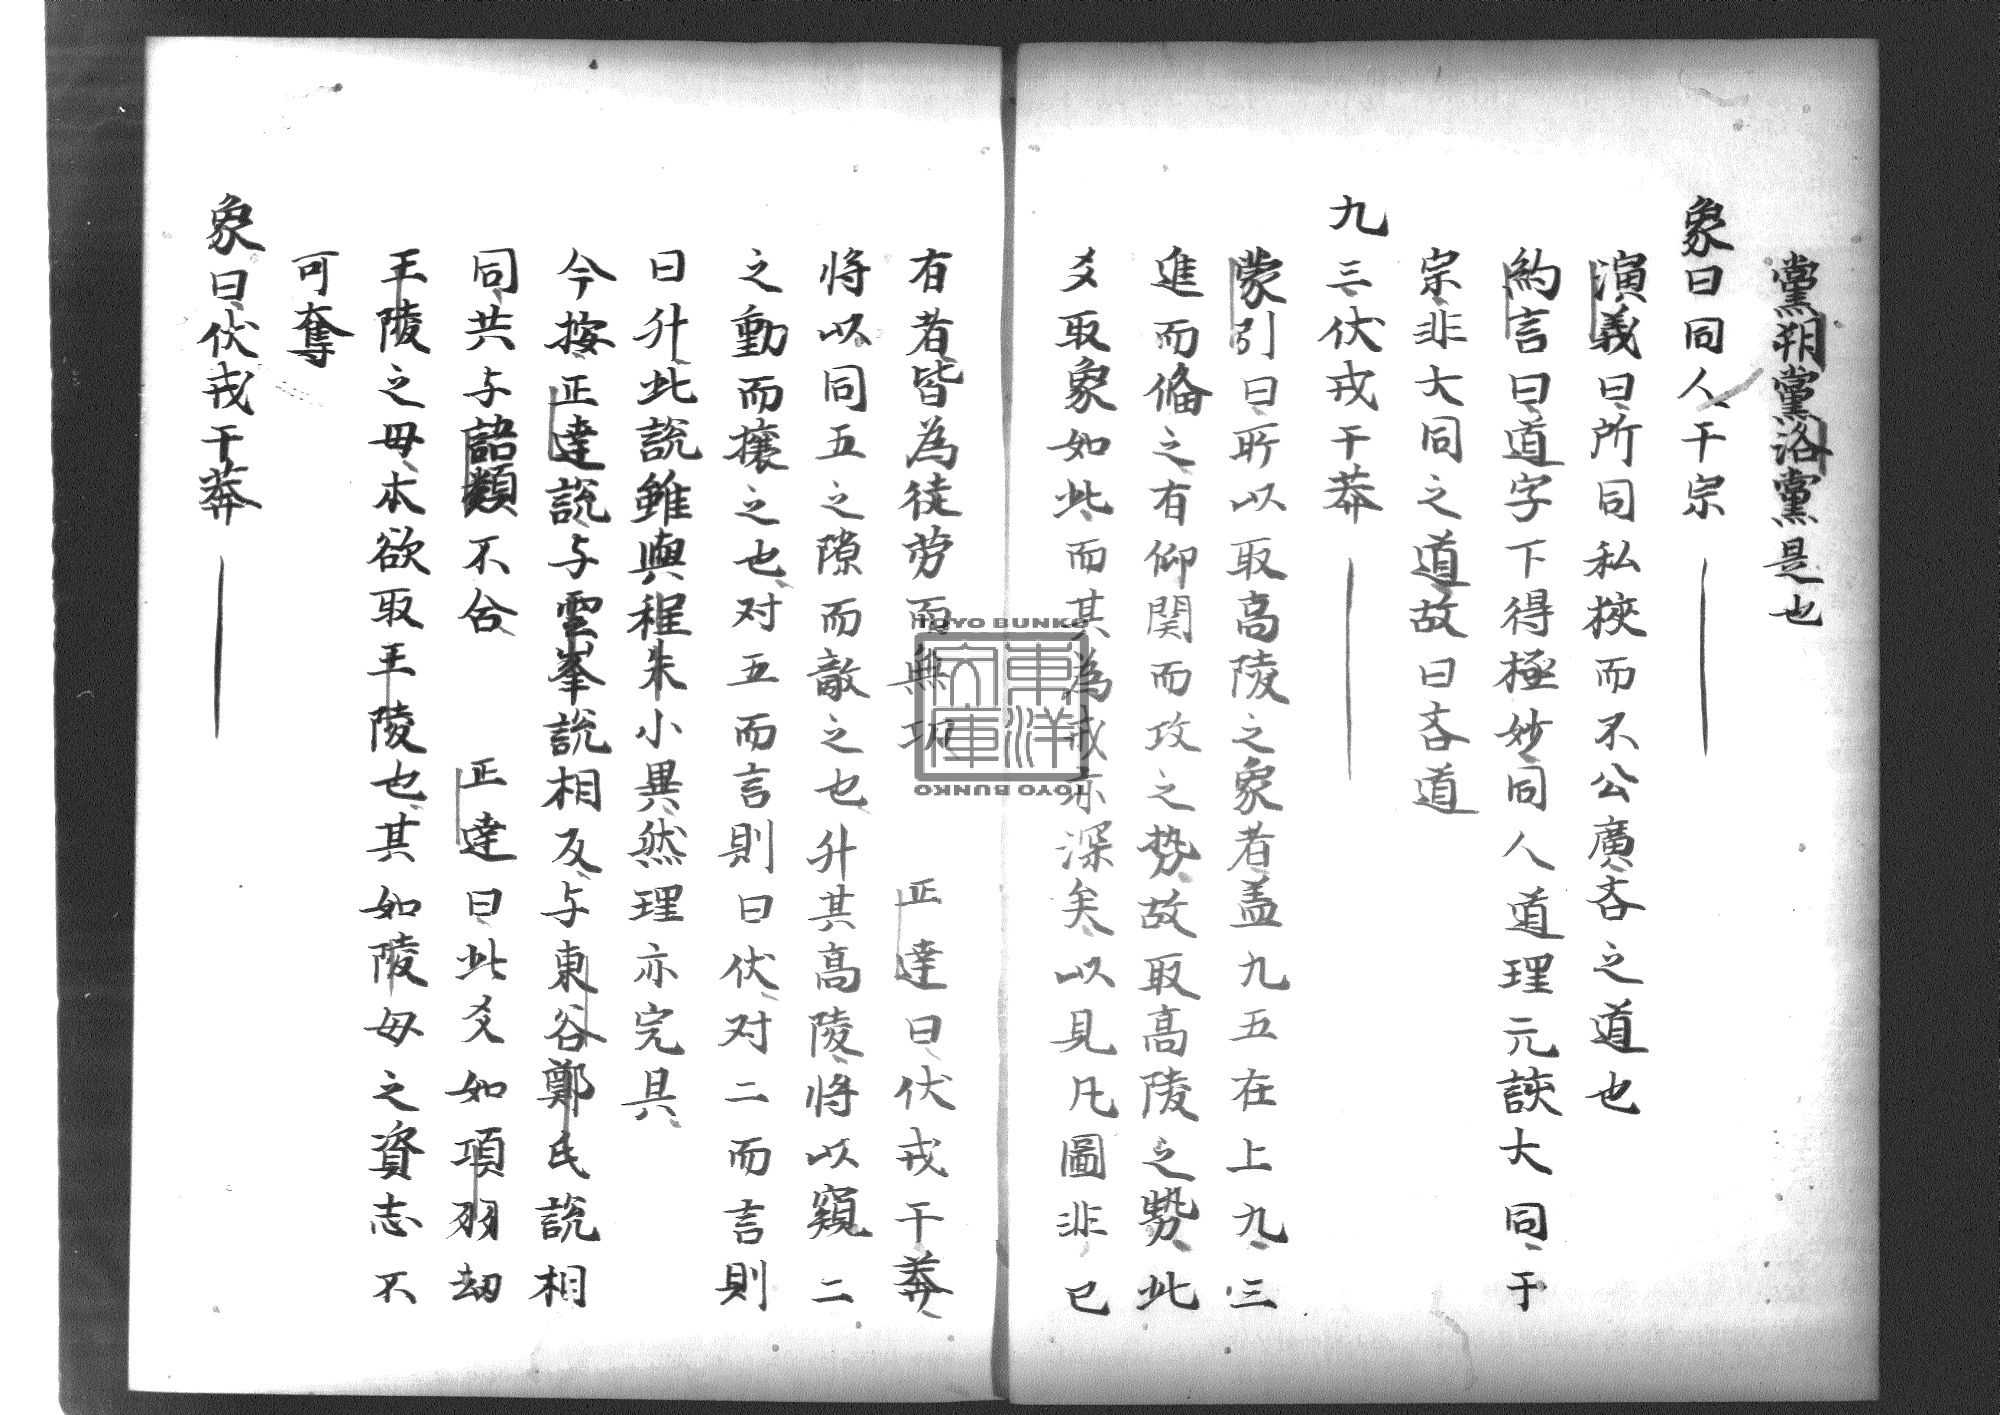 黨朔黨洛黨是也
象曰同人于宗
演義曰所同私挾而不公廣吝之道也
約言曰道字下得極妙同人道理元該大同于
宗非大同之道故曰吝道
九三伏戎于莽
蒙引曰所以取高陵之象者盖九五在上九三
進而偹之有仰関而攻之势故取高陵之势此
爻取象如此而其為戒亦深矣以見凡圖非已
有者皆為徒劳而無功 正達曰伏戎于莽
将以同五之隙而敵之也升其高陵将以窺二
之動而攘之也对五而言則曰伏对二而言則
曰升此説雖與程朱小異然理亦完具
今按正達説与雲峯説相反与東谷鄭氏説相
同共与語類不合 正達曰此爻如項羽刧
王陵之母本欲取王陵也其如陵母之資志不
可奪
象曰伏戎于莽
TOYO BUNKO
東洋文庫
TOYO BUNKO